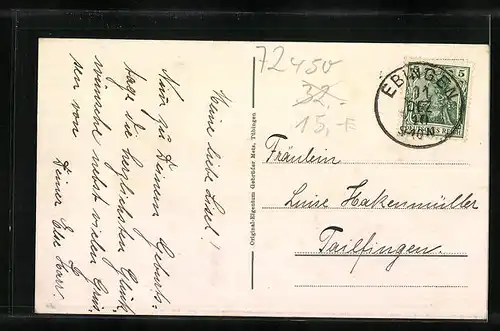 Meine liebe Luise!
Nimm zu Deinem Geburts-
tage die herzlichsten Glück-
wünsche nebst vielen Grüs-
sen von
Deiner Else Harr.
Original-Eigentum Gebrüder Metz, Tübingen
72450
32.-
15,-
5
EBINGEN
DEZ
10
Fräulein
Luise Hakenmüller
Tailfingen.